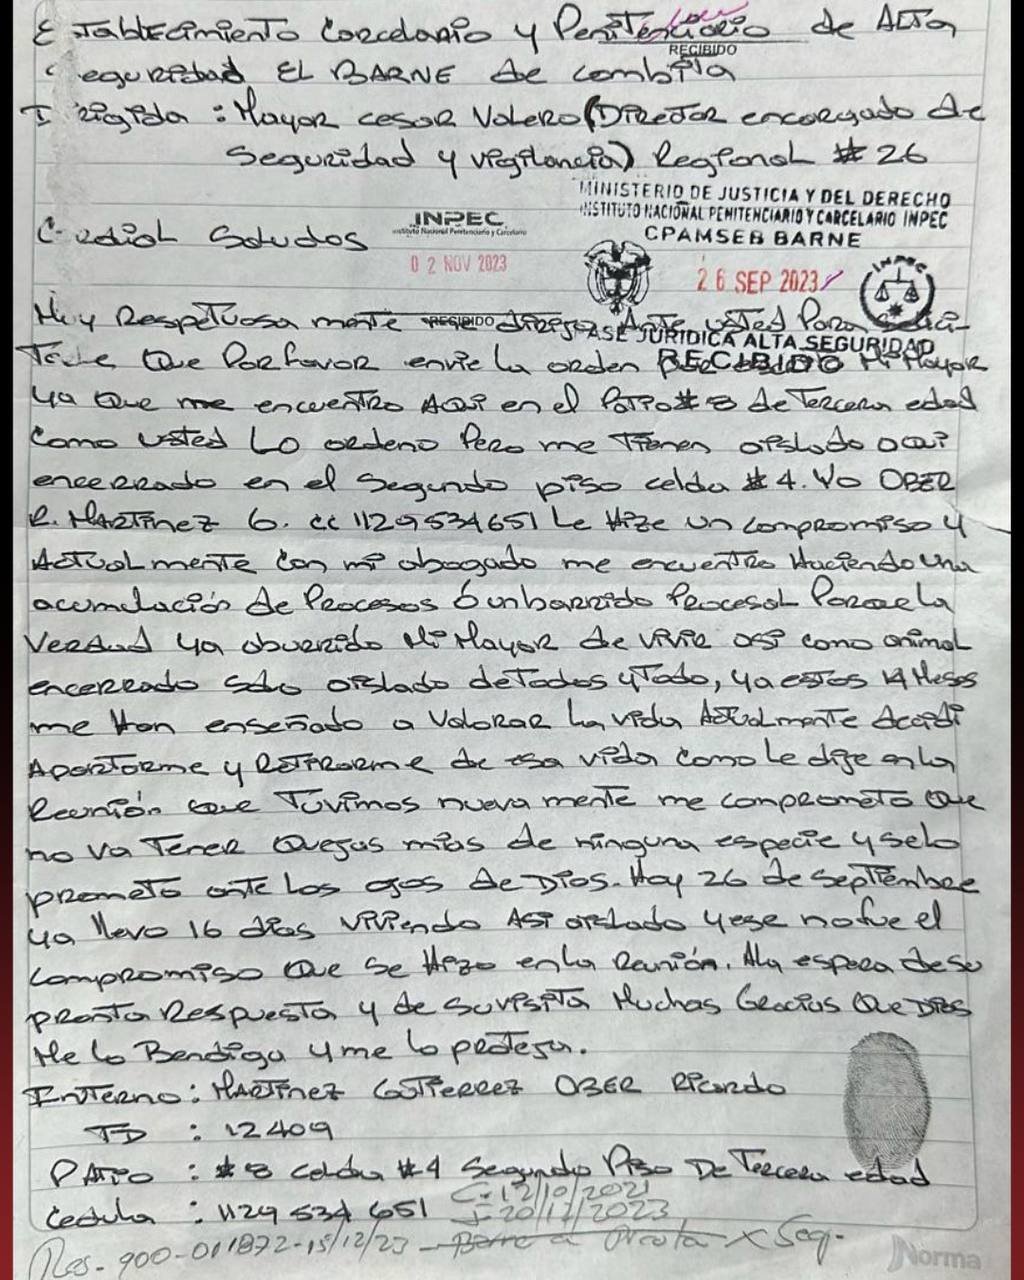 Establecimiento Carcelario y Penitenciario de Alta
RECIBIDO
Seguridad EL BARNE de Combita
Dirigida : Mayor cesar Valero (Director encargado de
Seguridad y vigilancia) Regional # 26
MINISTERIO DE JUSTICIA Y DEL DERECHO
INSTITUTO NACIONAL PENITENCIARIO Y CARCELARIO INPEC
CPAMSEB BARNE
INPEC
Instituto Nacional Penitenciario y Carcelario
Cordial Saludos
02 NOV 2023
26 SEP 2023
INPEC
Muy Respetuosa mente dirijo Ante usted Para Solici-
RECIBIDO
ASE JURIDICA ALTA SEGURIDAD
RECIBIDO
Tarle Que Por favor envie la orden Mi Mayor
ya Que me encuentro AQui en el Patio # 8 de Tercera edad
Como usted Lo ordeno Pero me Tienen aislado aqui
encerrado en el Segundo piso celda # 4. Yo OBER
R. MARTinez G. cc 1129534651 Le Hize un compromiso y
ActuaLmente Con mi abogado me encuentro Haciendo una
acumulación de Procesos ó un barrido Procesal Porque la
Verdad ya aburrido Mi Mayor de vivir asi como animal
encerrado solo aislado de Todos y Todo, ya estos 14 Meses
me Han enseñado a Valorar La vida Actualmente decidi
Apartarme y Retirarme de esa vida como le dije en la
Reunión que Tuvimos nueva mente me comprometo Que
no va Tener Quejas mias de ninguna especie y se lo
prometo ante Los ojos de Dios. Hoy 26 de Septiembre
ya llevo 16 dias viviendo Asi aislado y ese no fue el
compromiso Que se Hizo en la Reunión. A la espera de su
pronta Respuesta y de su visita Muchas Gracias Que Dios
Me lo Bendiga y me lo proteja.
Interno : MARTinez GuTierrez OBER Ricardo
TD : 12409
PATio : # 8 Celda # 4 Segundo Piso De Tercera edad
C. 12/10/2021
Cedula : 1129 534 651
20/12/2023
Res - 900-011872-15/12/23 - Barne a Picota x Seg.
Norma